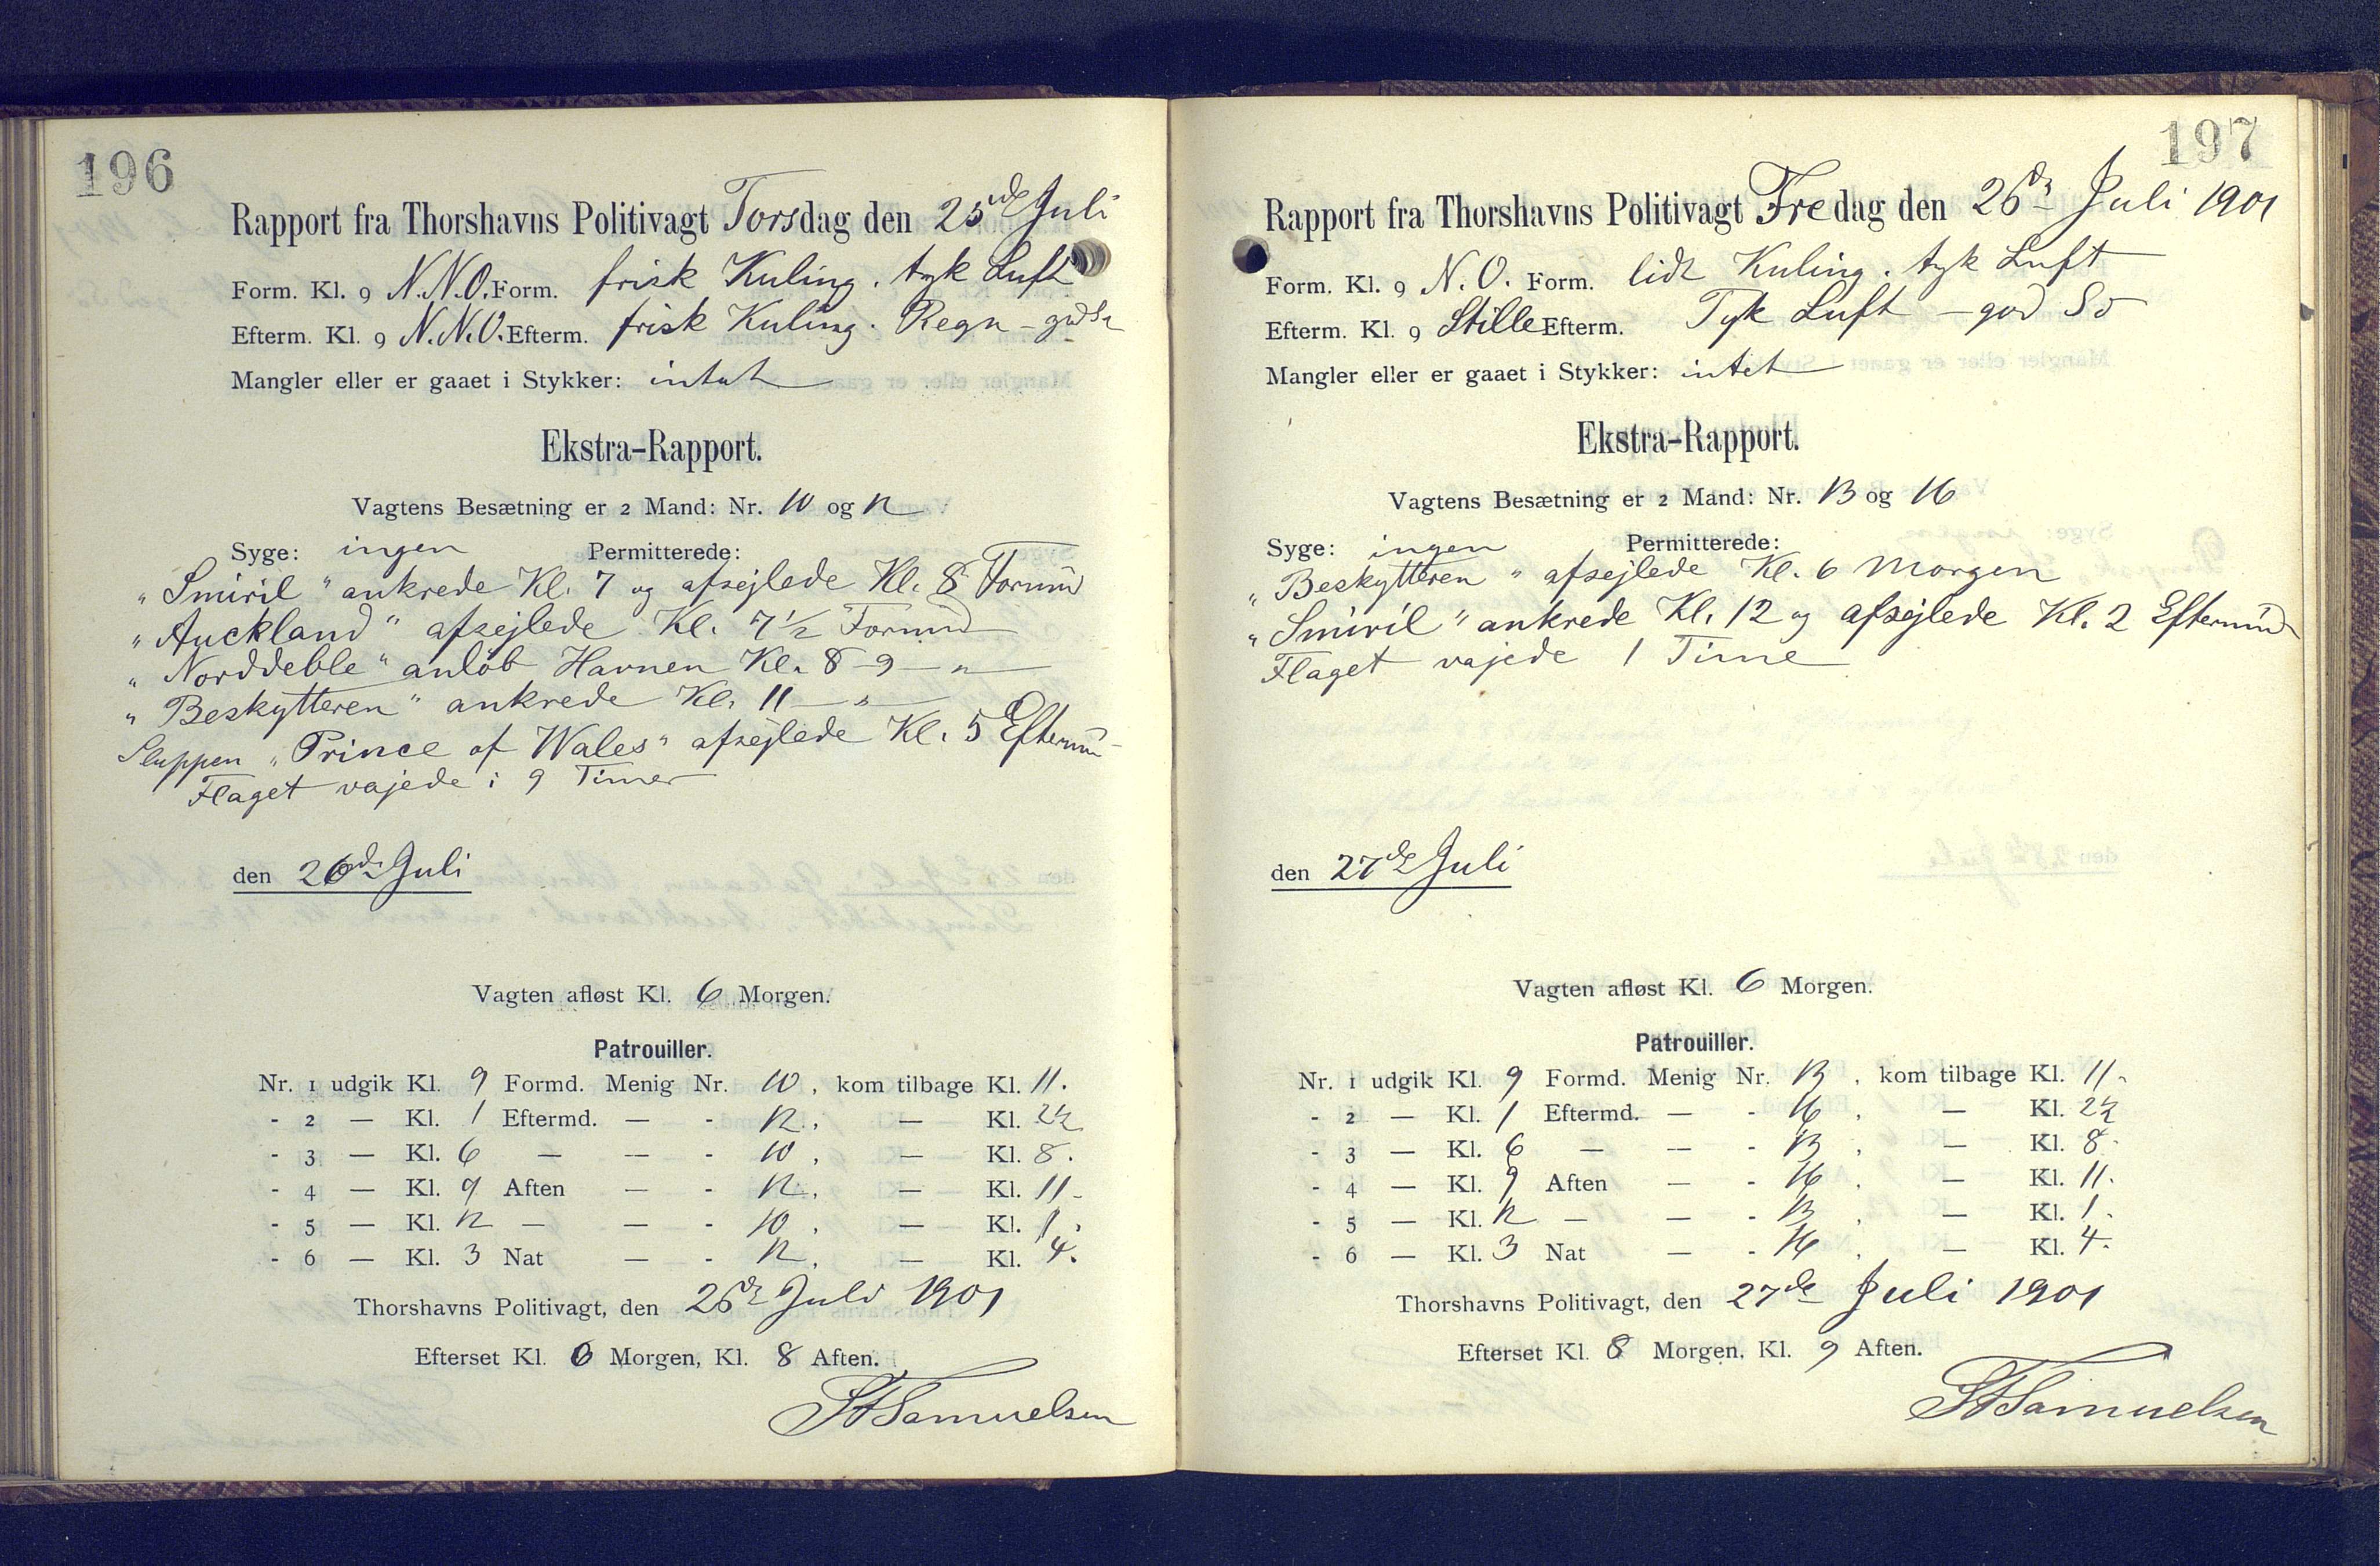 196
Rapport fra Thorshavns Politivagt Torsdag den 25de Juli
Form. Kl. 9 N.N.O. Form. frisk Kuling. tyk Luft
Efterm. Kl. 9 N.N.O. Efterm. frisk Kuling. Regn - god So
Mangler eller er gaaet i Stykker: intet
Ekstra-Rapport.
Vagtens Besætning er 2 Mand: Nr. 10 og 12
Syge: ingen Permitterede:
"Smiril" ankrede Kl. 7 og afsejlede Kl. 8 Formd
"Auckland" afsejlede Kl. 7½ Formd
"Norddeble" anlöb Havnen Kl. 8-9 — "
"Beskytteren" ankrede Kl. 11 — "
Sluppen "Prince of Wales" afsejlede Kl. 5 Efterm
Flaget vajede i 9 Timer
den 26de Juli
Vagten afløst Kl. 6 Morgen.
Patrouiller.
Nr. 1 udgik Kl. 9 Formd. Menig Nr. 10, kom tilbage Kl. 11.
- 2 — Kl. 1 Eftermd. — - 12, — Kl. 2½
- 3 — Kl. 6 — — - 10, — Kl. 8.
- 4 — Kl. 9 Aften — - 12, — Kl. 11.
- 5 — Kl. 12 — — - 10, — Kl. 1.
- 6 — Kl. 3 Nat — - 12, — Kl. 4.
Thorshavns Politivagt, den 26de Juli 1901
Efterset Kl. 6 Morgen, Kl. 8 Aften.
Samuelsen
197
Rapport fra Thorshavns Politivagt Fredag den 26de Juli 1901
Form. Kl. 9 N.O. Form. lidt Kuling. tyk Luft
Efterm. Kl. 9 Stille Efterm. Tyk Luft - god So
Mangler eller er gaaet i Stykker: intet
Ekstra-Rapport.
Vagtens Besætning er 2 Mand: Nr. 13 og 16
Syge: ingen Permitterede:
"Beskytteren" afsejlede Kl. 6 Morgen
"Smiril" ankrede Kl. 12 og afsejlede Kl. 2 Eftermd
Flaget vajede 1 Time
den 27de Juli
Vagten afløst Kl. 6 Morgen.
Patrouiller.
Nr. 1 udgik Kl. 9 Formd. Menig Nr. 13, kom tilbage Kl. 11.
- 2 — Kl. 1 Eftermd. — - 16, — Kl. 2½
- 3 — Kl. 6 — — - 13, — Kl. 8.
- 4 — Kl. 9 Aften — - 16, — Kl. 11.
- 5 — Kl. 12 — — - 13, — Kl. 1.
- 6 — Kl. 3 Nat — - 16, — Kl. 4.
Thorshavns Politivagt, den 27de Juli 1901
Efterset Kl. 8 Morgen, Kl. 9 Aften.
Samuelsen